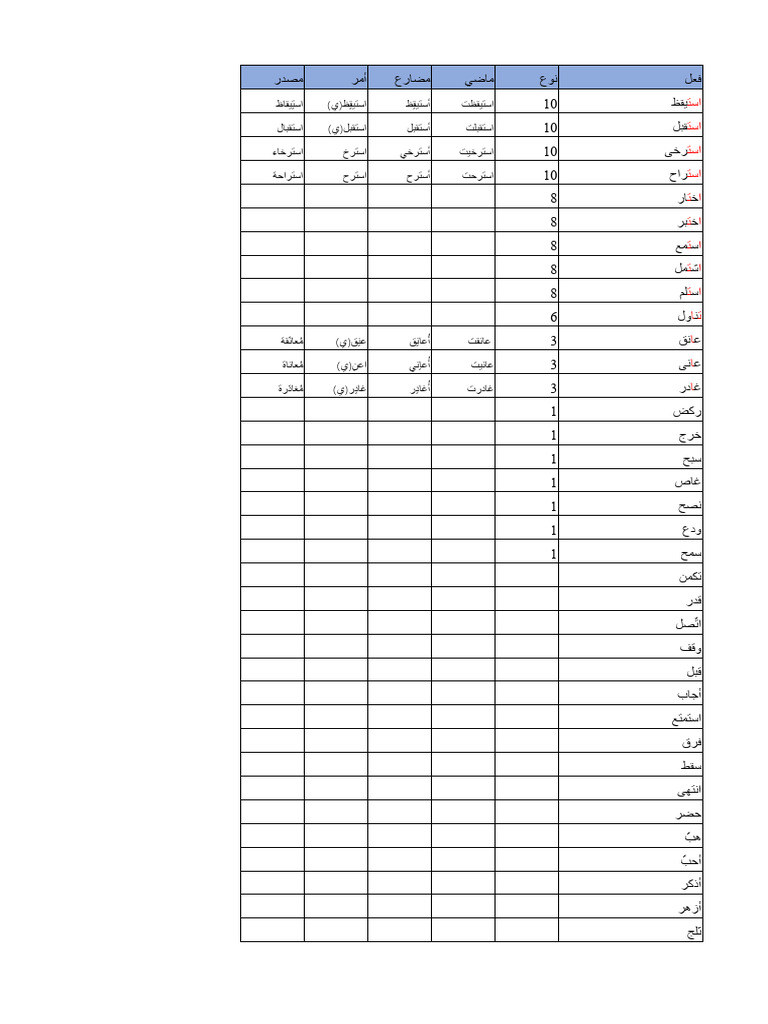 فعل نوع ماضي مضارع أمر مصدر
استيقظ 10 استيقظت أستيقِظ استيقِظ(ي) استيقاظ
استقبل 10 استقبلت أستقبل استقبل(ي) استقبال
استرخى 10 استرخيت أسترخي استرخ استرخاء
استراح 10 استرحت أسترح استرح استراحة
اختار 8
اختبر 8
استمع 8
اشتمل 8
استلم 8
تناول 6
عانق 3 عانقت أعانِق عنِق(ي) مُعانَقة
عانى 3 عانيت أعانِي اعن(ي) مُعاناة
غادر 3 غادرت أُغادِر غادِر(ي) مُغادَرة
ركض 1
خرج 1
سبح 1
غاص 1
نصح 1
ودع 1
سمح 1
تكمن
قدر
اتّصل
وقف
قبل
أجاب
استمتع
فرق
سقط
انتهى
حضر
هبّ
أحبّ
أذكر
أزهر
ثلج